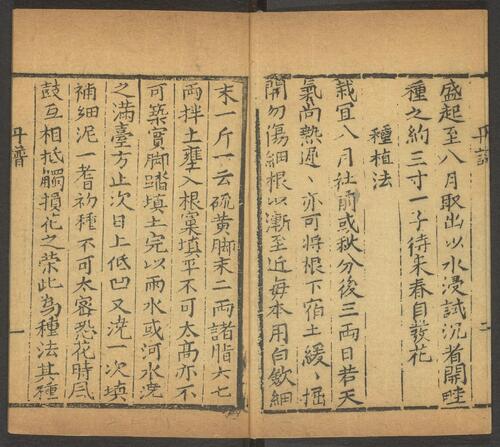 盛起至八月取出以水浸試沉者開畦
種之約三寸一子待来春自發花
種植法
栽宜八月社前或秋分後三兩日若天
氣尚熱遲、亦可將根下宿土緩、掘
開勿傷細根以漸至近每本用白歛細
末一斤一云硫黄脚末二兩諸脂六七
兩拌土壅入根窠填平不可太高亦不
可築實脚踏填土完以雨水或河水澆
之滿臺方止次日上低凹又澆一次填
補細泥一耆初種不可太密恐花時風
鼓互相抵觸損花之荣此為種法其種
丹譜
一